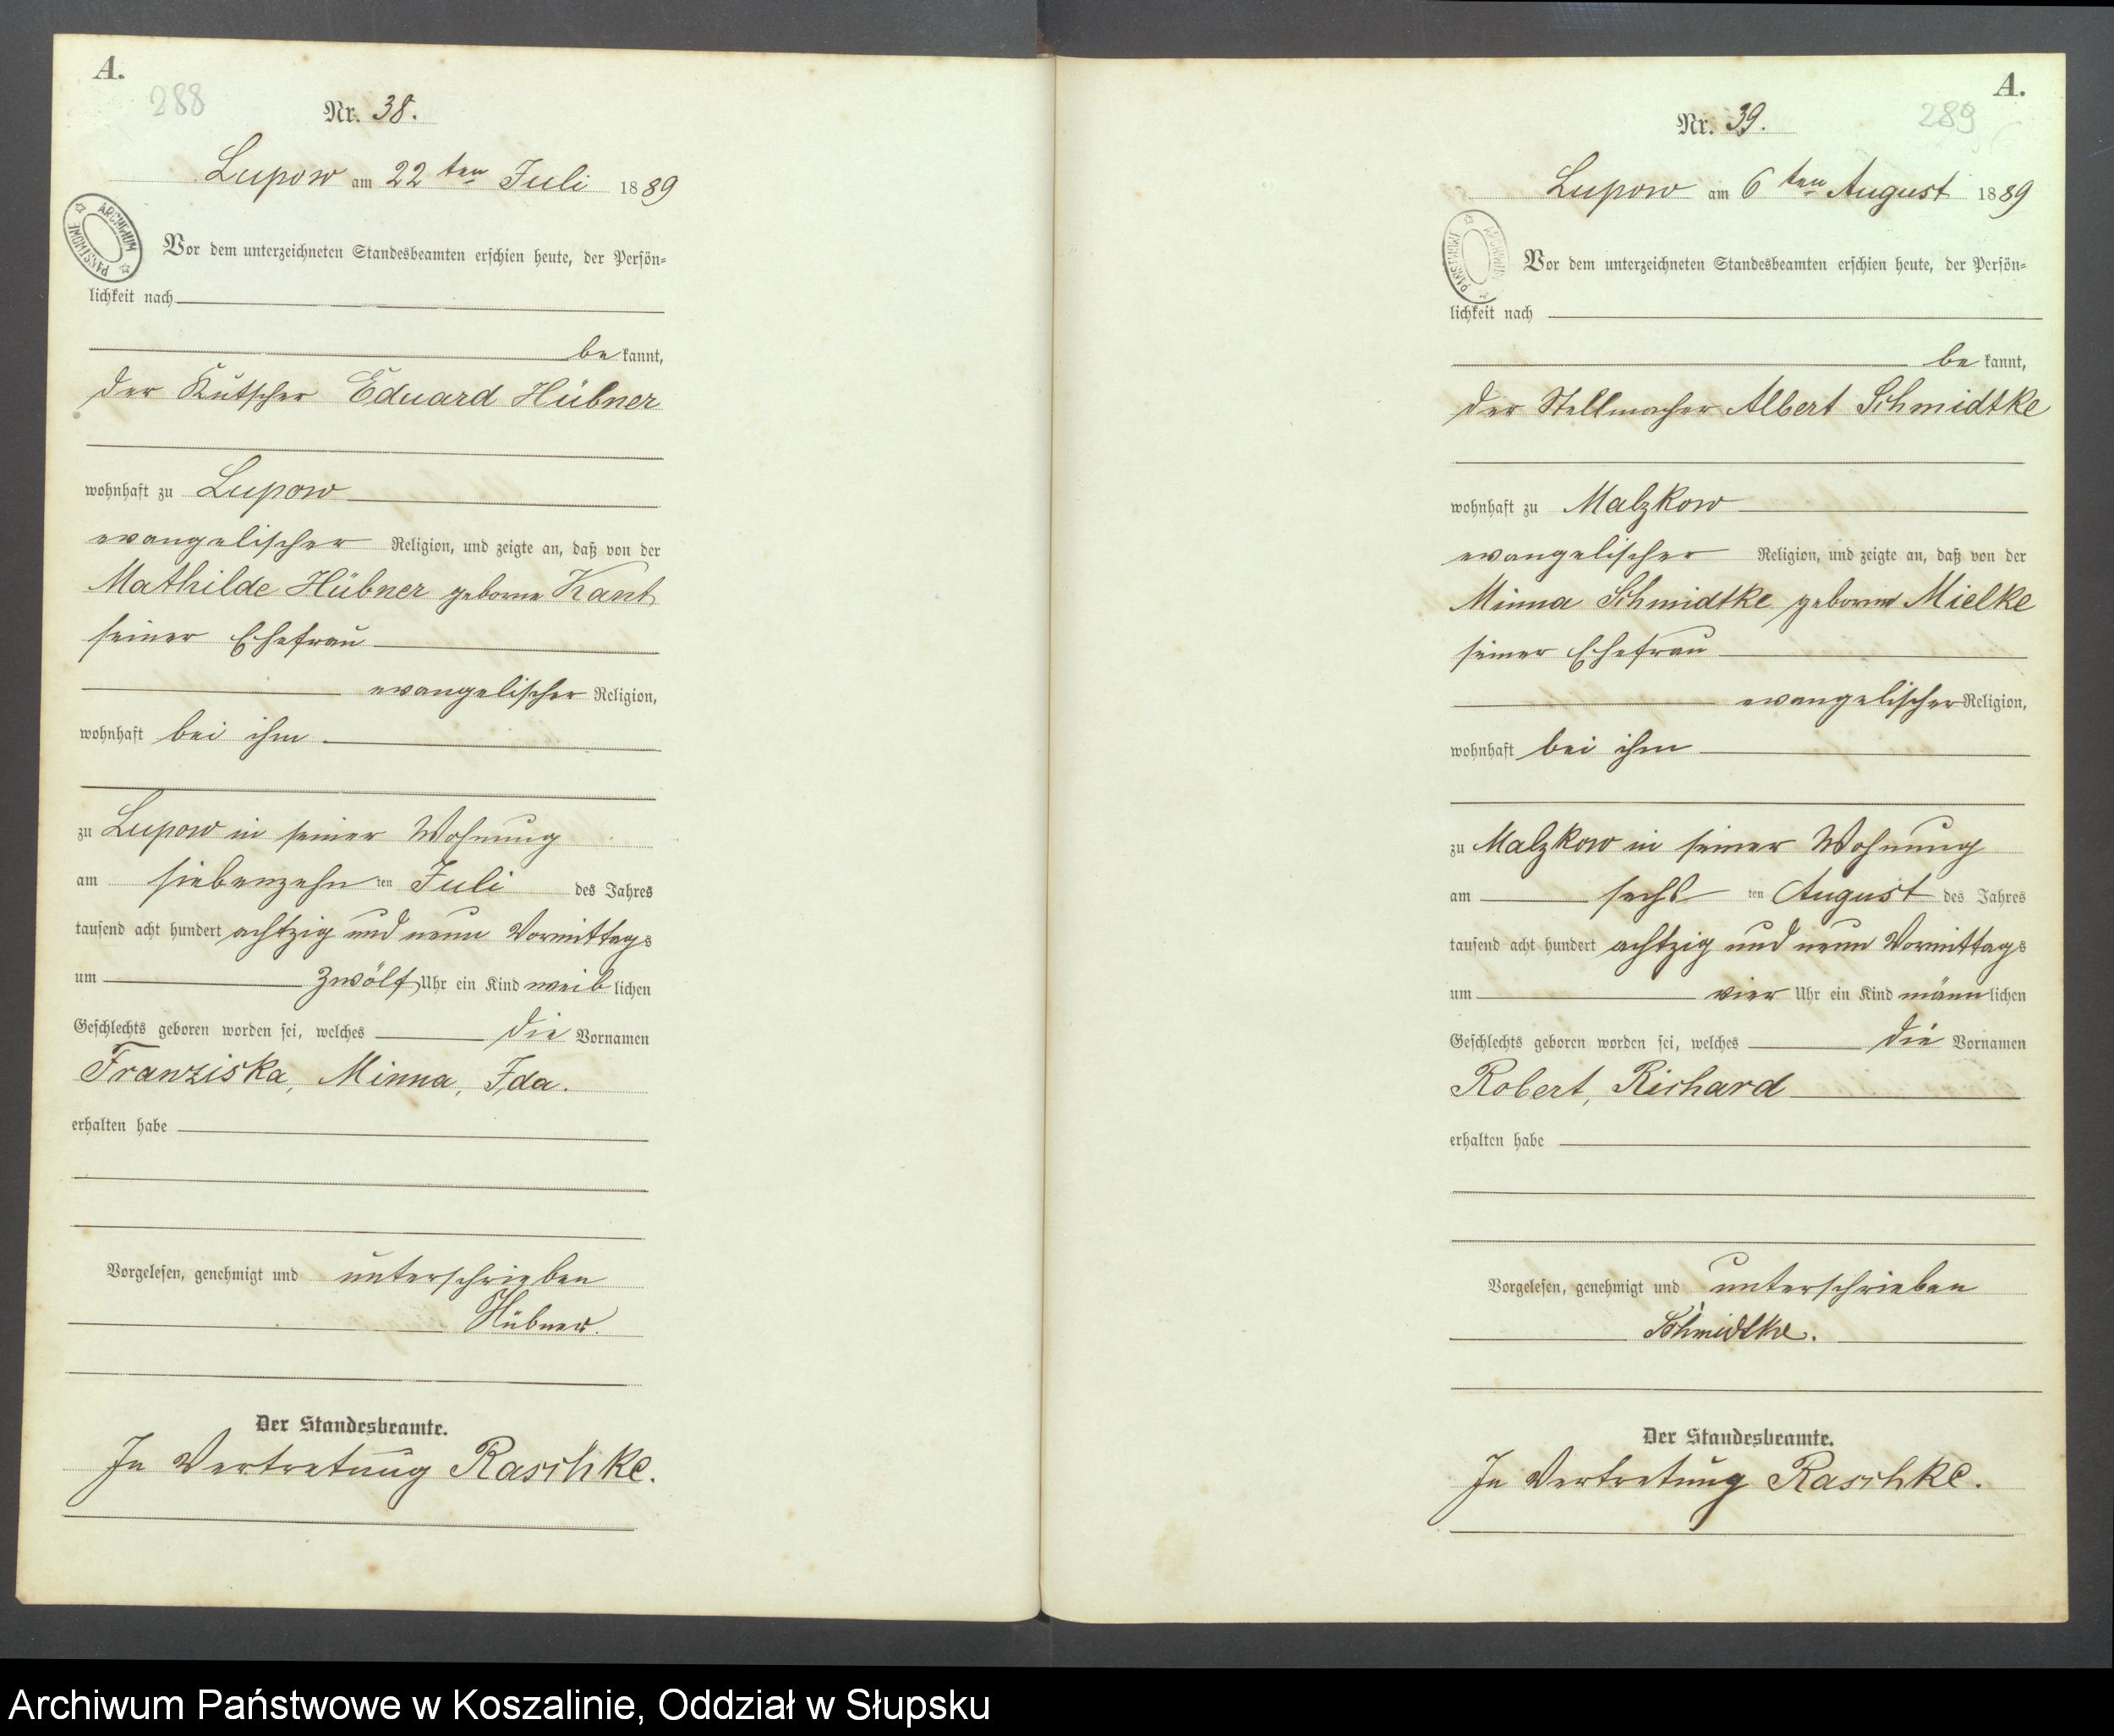 A.
288
Nr. 38.
Lupow am 22 ten Juli 1889
ARCHIWUM PAŃSTWOWE
Vor dem unterzeichneten Standesbeamten erschien heute, der Persön-
lichkeit nach
be kannt,
der Kutscher Eduard Hübner
wohnhaft zu Lupow
evangelischer Religion, und zeigte an, daß von der
Mathilde Hübner geborne Kant
seiner Ehefrau
evangelischer Religion,
wohnhaft bei ihm
zu Lupow in seiner Wohnung
am siebenzehn ten Juli des Jahres
tausend acht hundert achtzig und neun Vormittags
um zwölf Uhr ein Kind weib lichen
Geschlechts geboren worden sei, welches die Vornamen
Franziska, Minna, Ida.
erhalten habe
Vorgelesen, genehmigt und unterschrieben
Hübner.
Der Standesbeamte.
In Vertretung Raschke.
A.
289
Nr. 39.
Lupow am 6 ten August 1889
ARCHIWUM PAŃSTWOWE
Vor dem unterzeichneten Standesbeamten erschien heute, der Persön-
lichkeit nach
be kannt,
der Stellmacher Albert Schmidtke
wohnhaft zu Malzkow
evangelischer Religion, und zeigte an, daß von der
Minna Schmidtke geborne Mielke
seiner Ehefrau
evangelischer Religion,
wohnhaft bei ihm
zu Malzkow in seiner Wohnung
am sechs ten August des Jahres
tausend acht hundert achtzig und neun Vormittags
um vier Uhr ein Kind männ lichen
Geschlechts geboren worden sei, welches die Vornamen
Robert, Richard
erhalten habe
Vorgelesen, genehmigt und unterschrieben
Schmidtke.
Der Standesbeamte.
In Vertretung Raschke.
Archiwum Państwowe w Koszalinie, Oddział w Słupsku